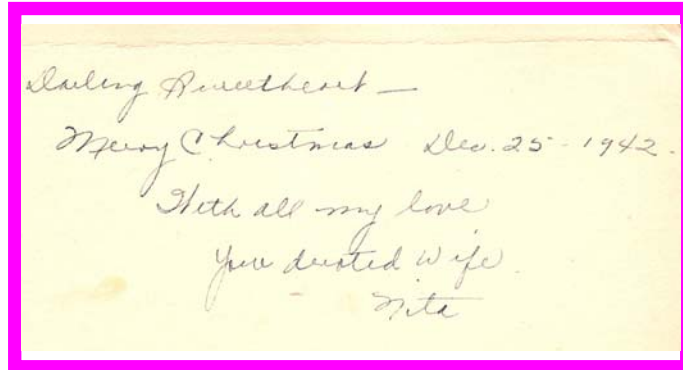 Darling Sweetheart —
Merry Christmas Dec. 25 - 1942.
With all my love
Your devoted Wife
Nita